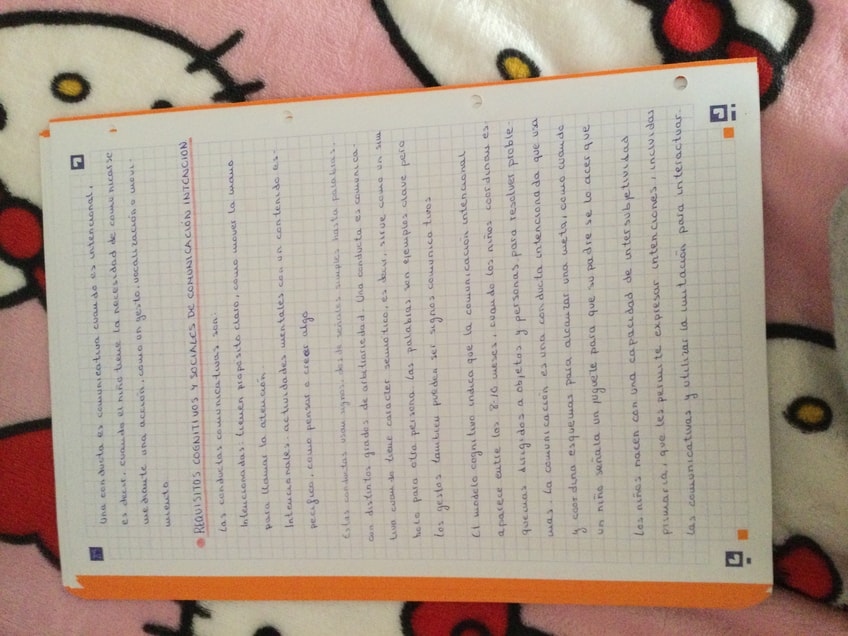 Una conducta es comunicativa cuando es intencional,
es decir, cuando el niño tiene la necesidad de comunicarse
mediante una acción, como un gesto, vocalización o movi-
miento.
REQUISITOS COGNITIVOS Y SOCIALES DE COMUNICACIÓN INTENCION
Las conductas comunicativas son:
Intencionadas: tienen propósito claro, como mover la mano
para llamar la atención
Intencionales: actividades mentales con un contenido es-
pecífico, como pensar o creer algo
Estas conductas usan signos, desde señales simples hasta palabras,
con distintos grados de arbitrariedad. Una conducta es comunica-
tiva cuando tiene caracter semiótico, es decir, sirve como un sím
bolo para otra persona. Las palabras son ejemplos clave pero
los gestos tambien pueden ser signos comunicativos
El modelo cognitivo indica que la comunicación intencional
aparece entre los 8-10 meses, cuando los niños coordinan es-
quemas dirigidos a objetos y personas para resolver proble-
mas. La comunicación es una conducta intencionada que usa
y coordina esquemas para alcanzar una meta, como cuando
un niño señala un juguete para que su padre se lo acerque
Los niños nacen con una capacidad de intersubjetividad
primaria, que les permite expresar intenciones, incluidas
las comunicativas y utilizar la imitación para interactuar.